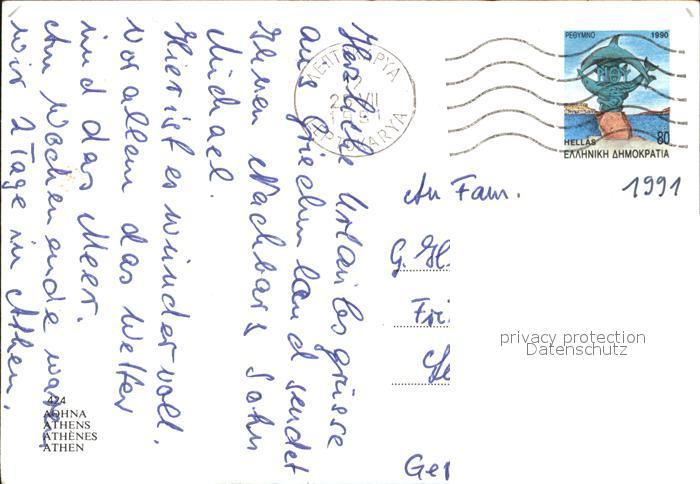 Herzliche Urlaubsgrüsse
aus Griechenland sendet
Ihnen Nachbars Sohn
Michael.
Hier ist es wundervoll.
Vor allem das Wetter
und das Meer.
Am Wochenende waren
wir 2 Tage in Athen.
424
ΑΘΗΝΑ
ATHENS
ATHÈNES
ATHEN
ΡΕΘΥΜΝΟ 1990
HELLAS 80
ΕΛΛΗΝΙΚΗ ΔΗΜΟΚΡΑΤΙΑ
1991
An Fam.
G.
privacy protection
Datenschutz